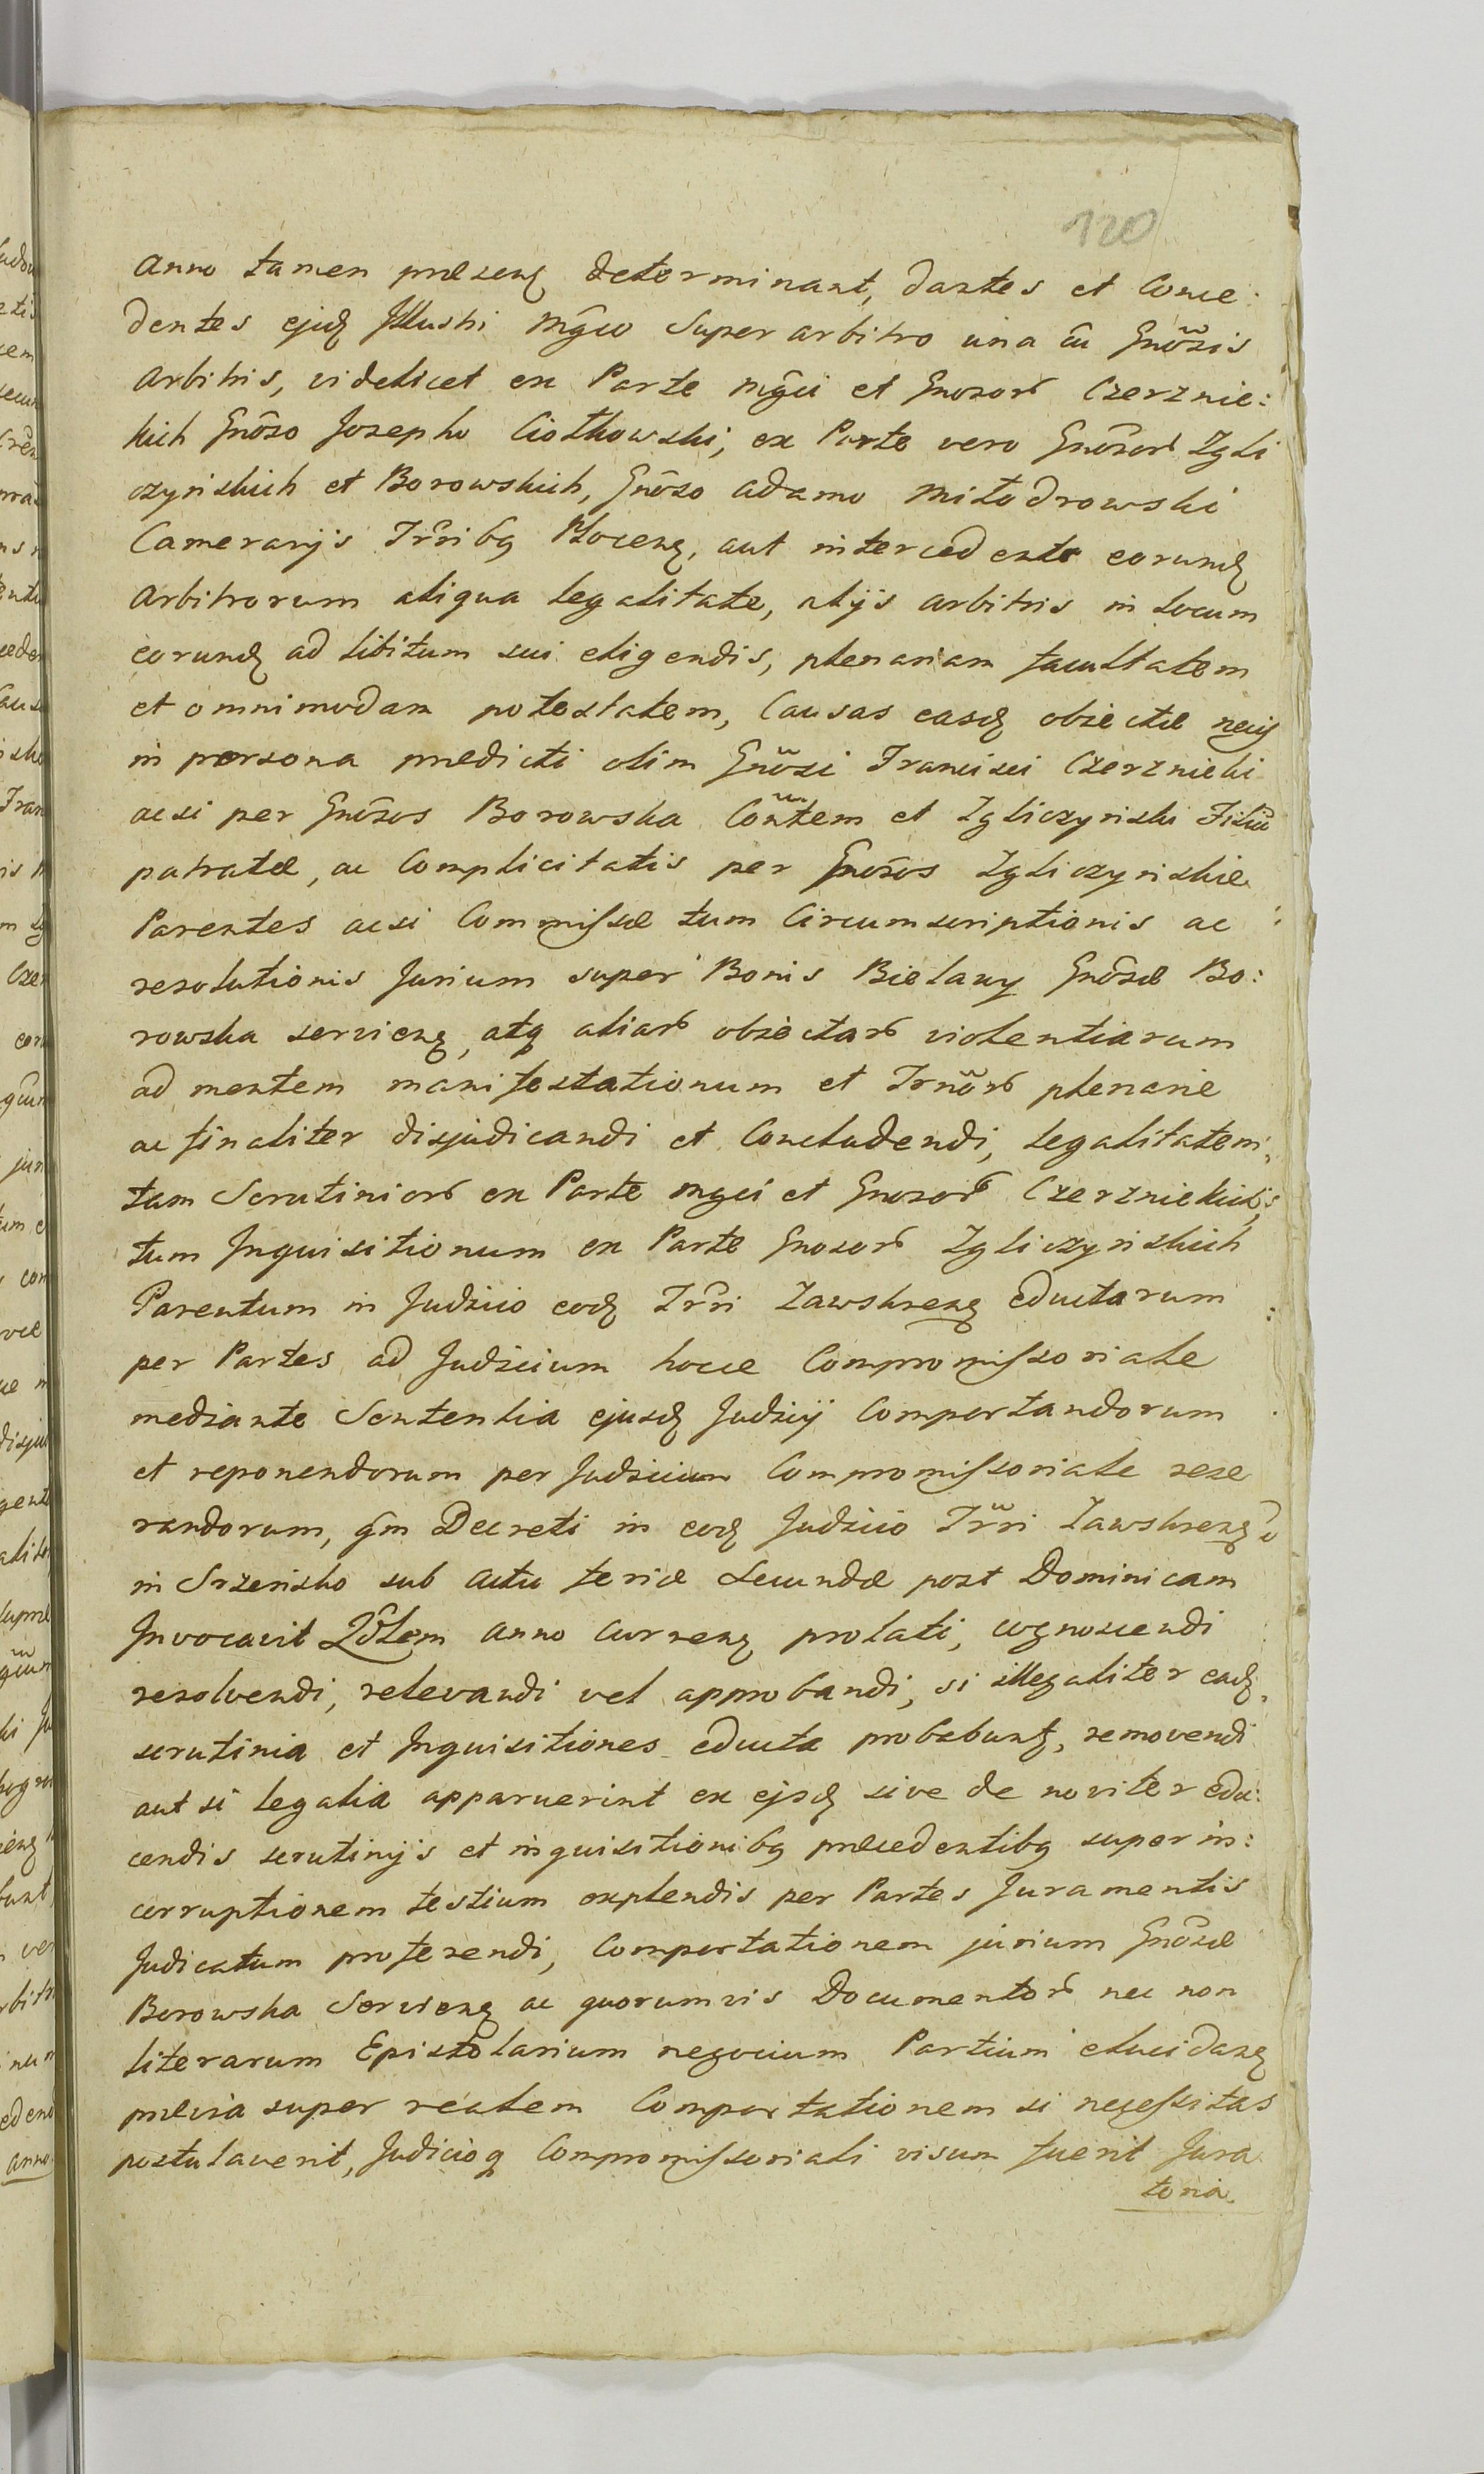 120
Anno tamen præsenꝫ determinant, dantes et Conce:
dentes ejuꝫ Jllustri Mg̃co Superarbitro una cũ Gnõsis
Arbitris, videlicet ex Parte Mg̃ci et Gnosorꝝ Czerznie:
kich Gnõso Josepho Ciołkowski, ex Parte vero Gnõsorꝝ Zgli
czynskich et Borowskich, Gnõso Adamo Miłodrowski
Camerarijs Trr̃ibꝗ Plocenꝫ, aut intercedente eorunꝫ
Arbitrorum aliqua legalitate, alijs Arbitris in locum
eorunꝫ ad libitum sui eligendis, plenariam facultatem
et omnimodam potestatem, Causas easꝫ obiectæ necis
in persona prædicti olim Gnõsi Francisci Czerznicki
acsi per Gnõsos Borowska Con̂tem et Zgliczynski Filiũ
patratæ, ac Complicitatis per Gnõsos Zgliczynskie
Parentes acsi Commissæ tum Circumscriptionis ac
resolutionis Jurium super Bonis Bielawy Gnõsæ Bo:
rowska servienꝫ, atꝗ aliarꝝ obiectarꝝ violentiarum
ad mentem manifestationum et Trñorꝝ plenarie
ac finaliter disjudicandi et Concludendi, legalitatem,
tam Scrutiniorꝝ ex Parte Mgci et Gnosorꝝ Czerznickich,
tum Jnquisitionum ex Parte Gnosorꝝ Zgliczynskich
Parentum in Judicio eodꝫ Trr̃i Zawskrenꝫ eductarum
per Partes ad Judicium hocce Compromissoriale
mediante Sententia ejusꝫ Judicij Comportandorum
et reponendorum per Judicium Compromissoriale rese
randorum, qm̃ Decreti in eodꝫ Judicio Trr̃i Zawskrenꝫ
in Srzensko sub actu feriæ Secundæ post Dominicam
Jnvocavit Qd̃lem Anno Currenꝫ prolati, cognoscendi
resolvendi, relevandi vel approbandi, si illegaliter eadꝫ
scrutinia et Jnquisitiones educta probabuntꝫ, removendi
aut si legalia apparuerint ex ejsꝫ sive de noviter edu:
cendis scrutinijs et inquisitionibꝗ præcedentibꝗ super in:
corruptionem testium explendis per Partes Juramentis
Judicatum proferendi, Comportationem jurium Gnõsæ
Borowska Servienꝫ ac quorumvis Documentorꝝ nec non
literarum Epistolarium negocium Partium elucidanꝫ
prævia super realem Comportationem si necessitas
postulaverit, Judicioꝗ Compromissoriali visum fuerit Jura
toria